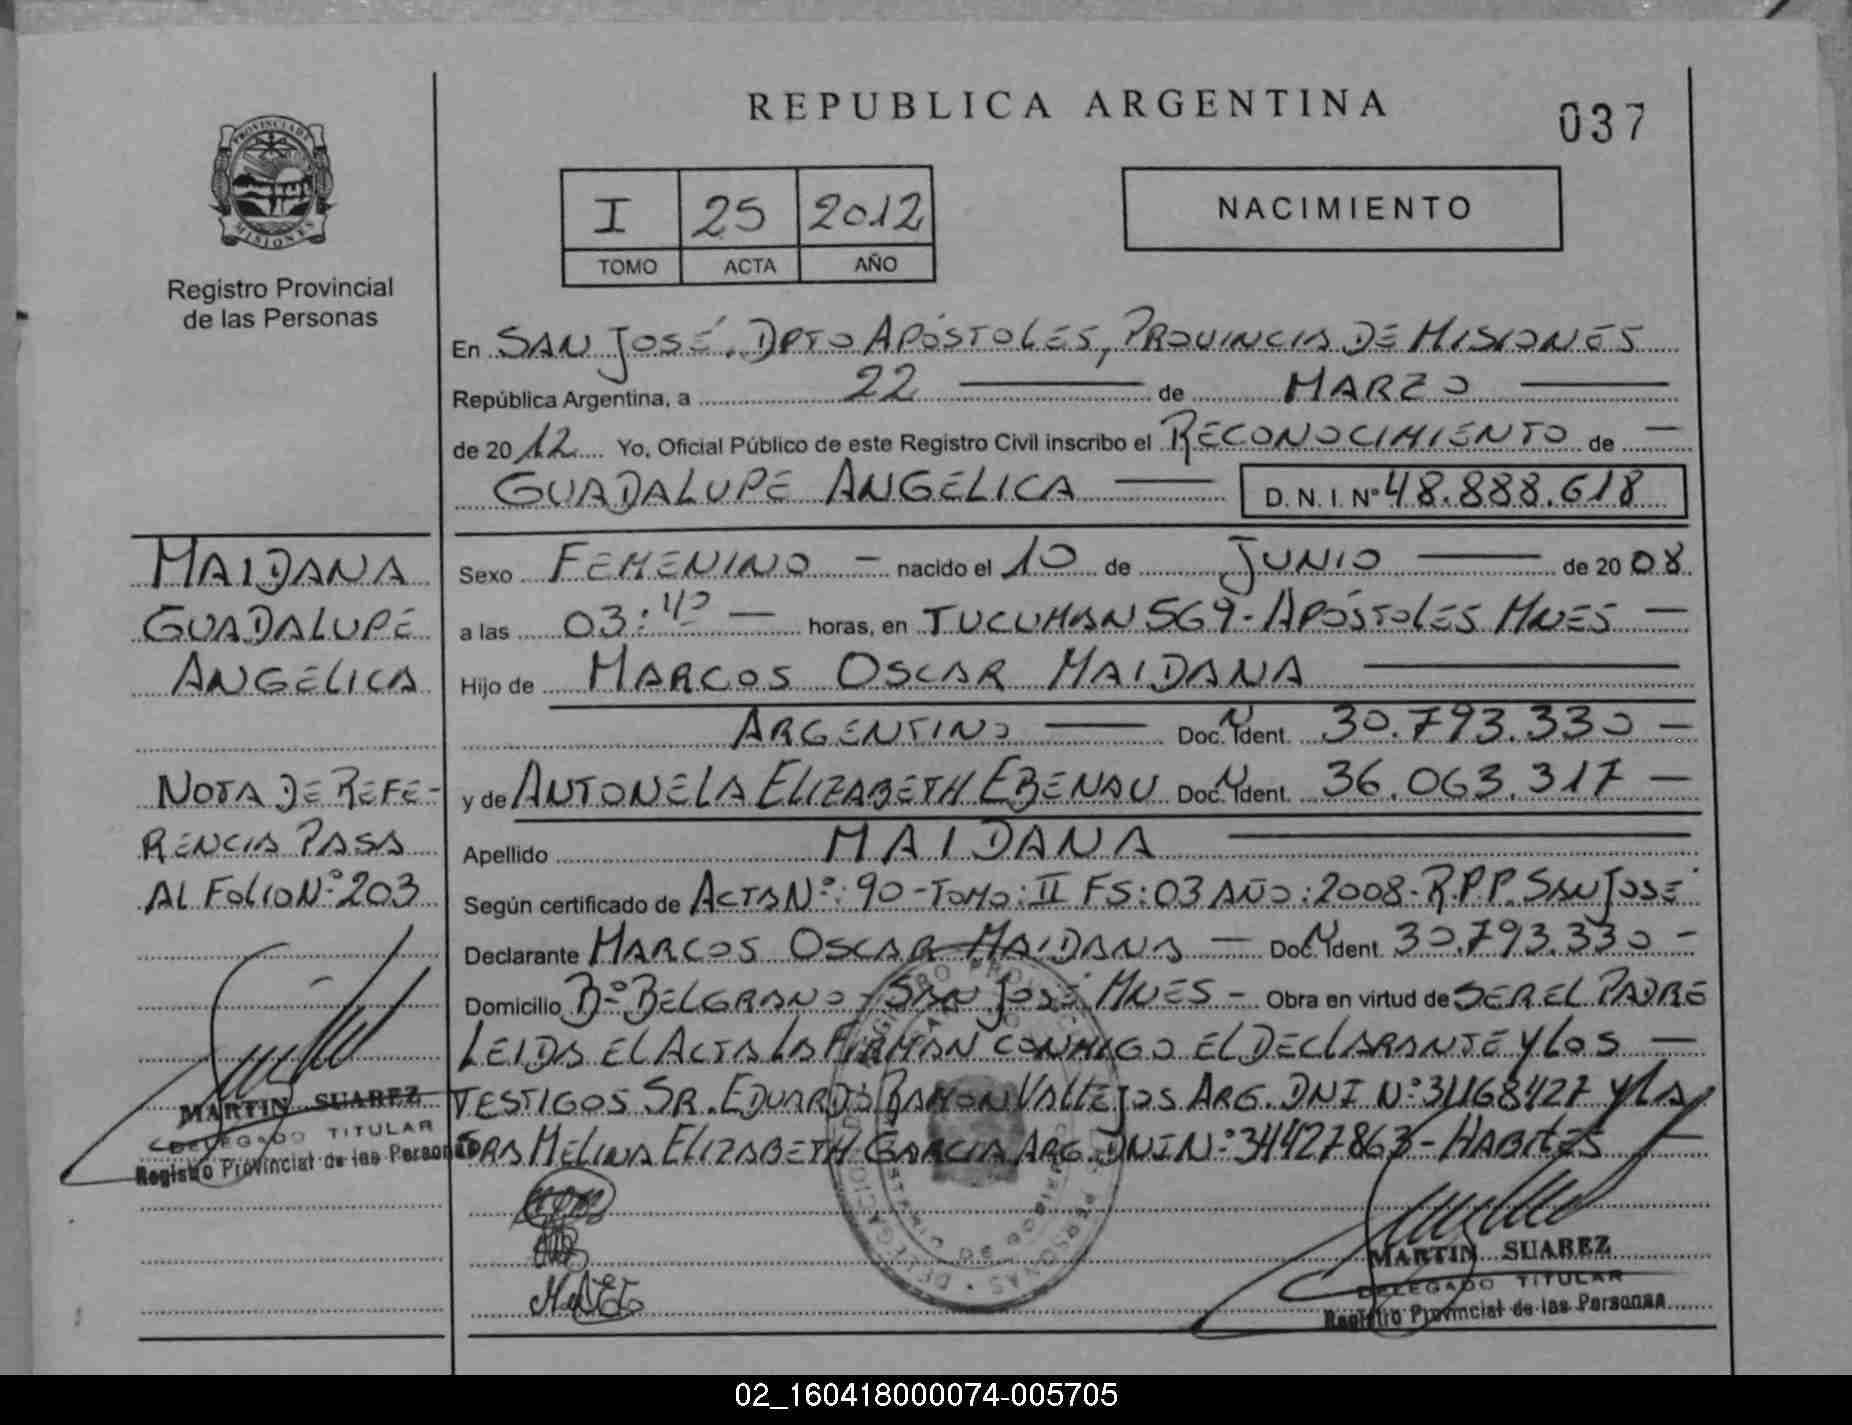 REPUBLICA ARGENTINA
037
PROVINCIA DE
MISIONES
Registro Provincial
de las Personas
I 25 2012
TOMO ACTA AÑO
NACIMIENTO
En SAN JOSÉ, DPTO APÓSTOLES, PROVINCIA DE MISIONES
República Argentina, a 22 de MARZO
de 2012 Yo, Oficial Público de este Registro Civil inscribo el RECONOCIMIENTO de
GUADALUPE ANGÉLICA D.N.I. Nº 48.888.618
MAIDANA
GUADALUPE
ANGÉLICA
NOTA DE REFE-
RENCIA PASA
AL FOLIO Nº 203
MARTIN SUAREZ
DELEGADO TITULAR
Registro Provincial de las Personas
Sexo FEMENINO - nacido el 10 de JUNIO de 2008
a las 03:40 horas, en TUCUMAN 569 - APÓSTOLES MNES
Hijo de MARCOS OSCAR MAIDANA
ARGENTINO Doc. N Ident. 30.793.330
y de ANTONELA ELIZABETH EBENAU Doc. N Ident. 36.063.317
Apellido MAIDANA
Según certificado de ACTA Nº: 90 - TOMO: II FS: 03 AÑO: 2008 - R.P.P. SAN JOSÉ
Declarante MARCOS OSCAR MAIDANA - Doc. N Ident. 30.793.330 -
Domicilio Bº BELGRANO - SAN JOSÉ MNES - Obra en virtud de SER EL PADRE
LEIDA EL ACTA LA FIRMAN CONMIGO EL DECLARANTE Y LOS
TESTIGOS SR. EDUARDO RAMON VALLEJOS ARG. DNI Nº 31168427 Y LA
SRA MELINA ELIZABETH GARCIA ARG. DNI Nº 34427863 - HABILES
MARTIN SUAREZ
DELEGADO TITULAR
Registro Provincial de las Personas
02_160418000074-005705